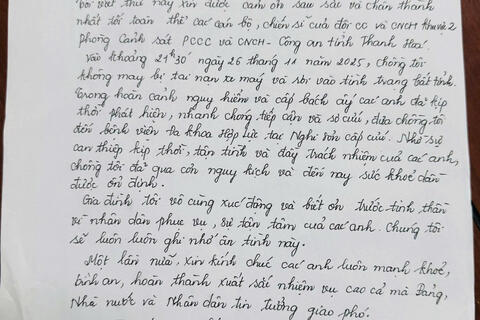 bởi viết thư này xin được cảm ơn sâu sắc và chân thành
nhất tới toàn thể các cán bộ, chiến sĩ của đội CC và CNCH khu vực 2
phòng Cảnh sát PCCC và CNCH - Công an tỉnh Thanh Hoá.
Vào khoảng 21h30 ngày 26 tháng 11 năm 2025, chồng tôi
không may bị tai nạn xe máy và rơi vào tình trạng bất tỉnh.
Trong hoàn cảnh nguy hiểm và cấp bách ấy các anh đã kịp
thời phát hiện, nhanh chóng tiếp cận và sơ cứu, đưa chồng tôi
đến bệnh viện đa khoa Hợp lực tại Nghi Sơn cấp cứu. Nhờ sự
can thiệp kịp thời, tận tình và đầy trách nhiệm của các anh,
chồng tôi đã qua cơn nguy kịch và đến nay sức khoẻ dần
được ổn định.
Gia đình tôi vô cùng xúc động và biết ơn trước tinh thần
vì nhân dân phục vụ, sự tận tâm của các anh. Chúng tôi
sẽ luôn luôn ghi nhớ ân tình này.
Một lần nữa, xin kính chúc các anh luôn mạnh khoẻ,
bình an, hoàn thành xuất sắc nhiệm vụ cao cả mà Đảng,
Nhà nước và Nhân dân tin tưởng giao phó.